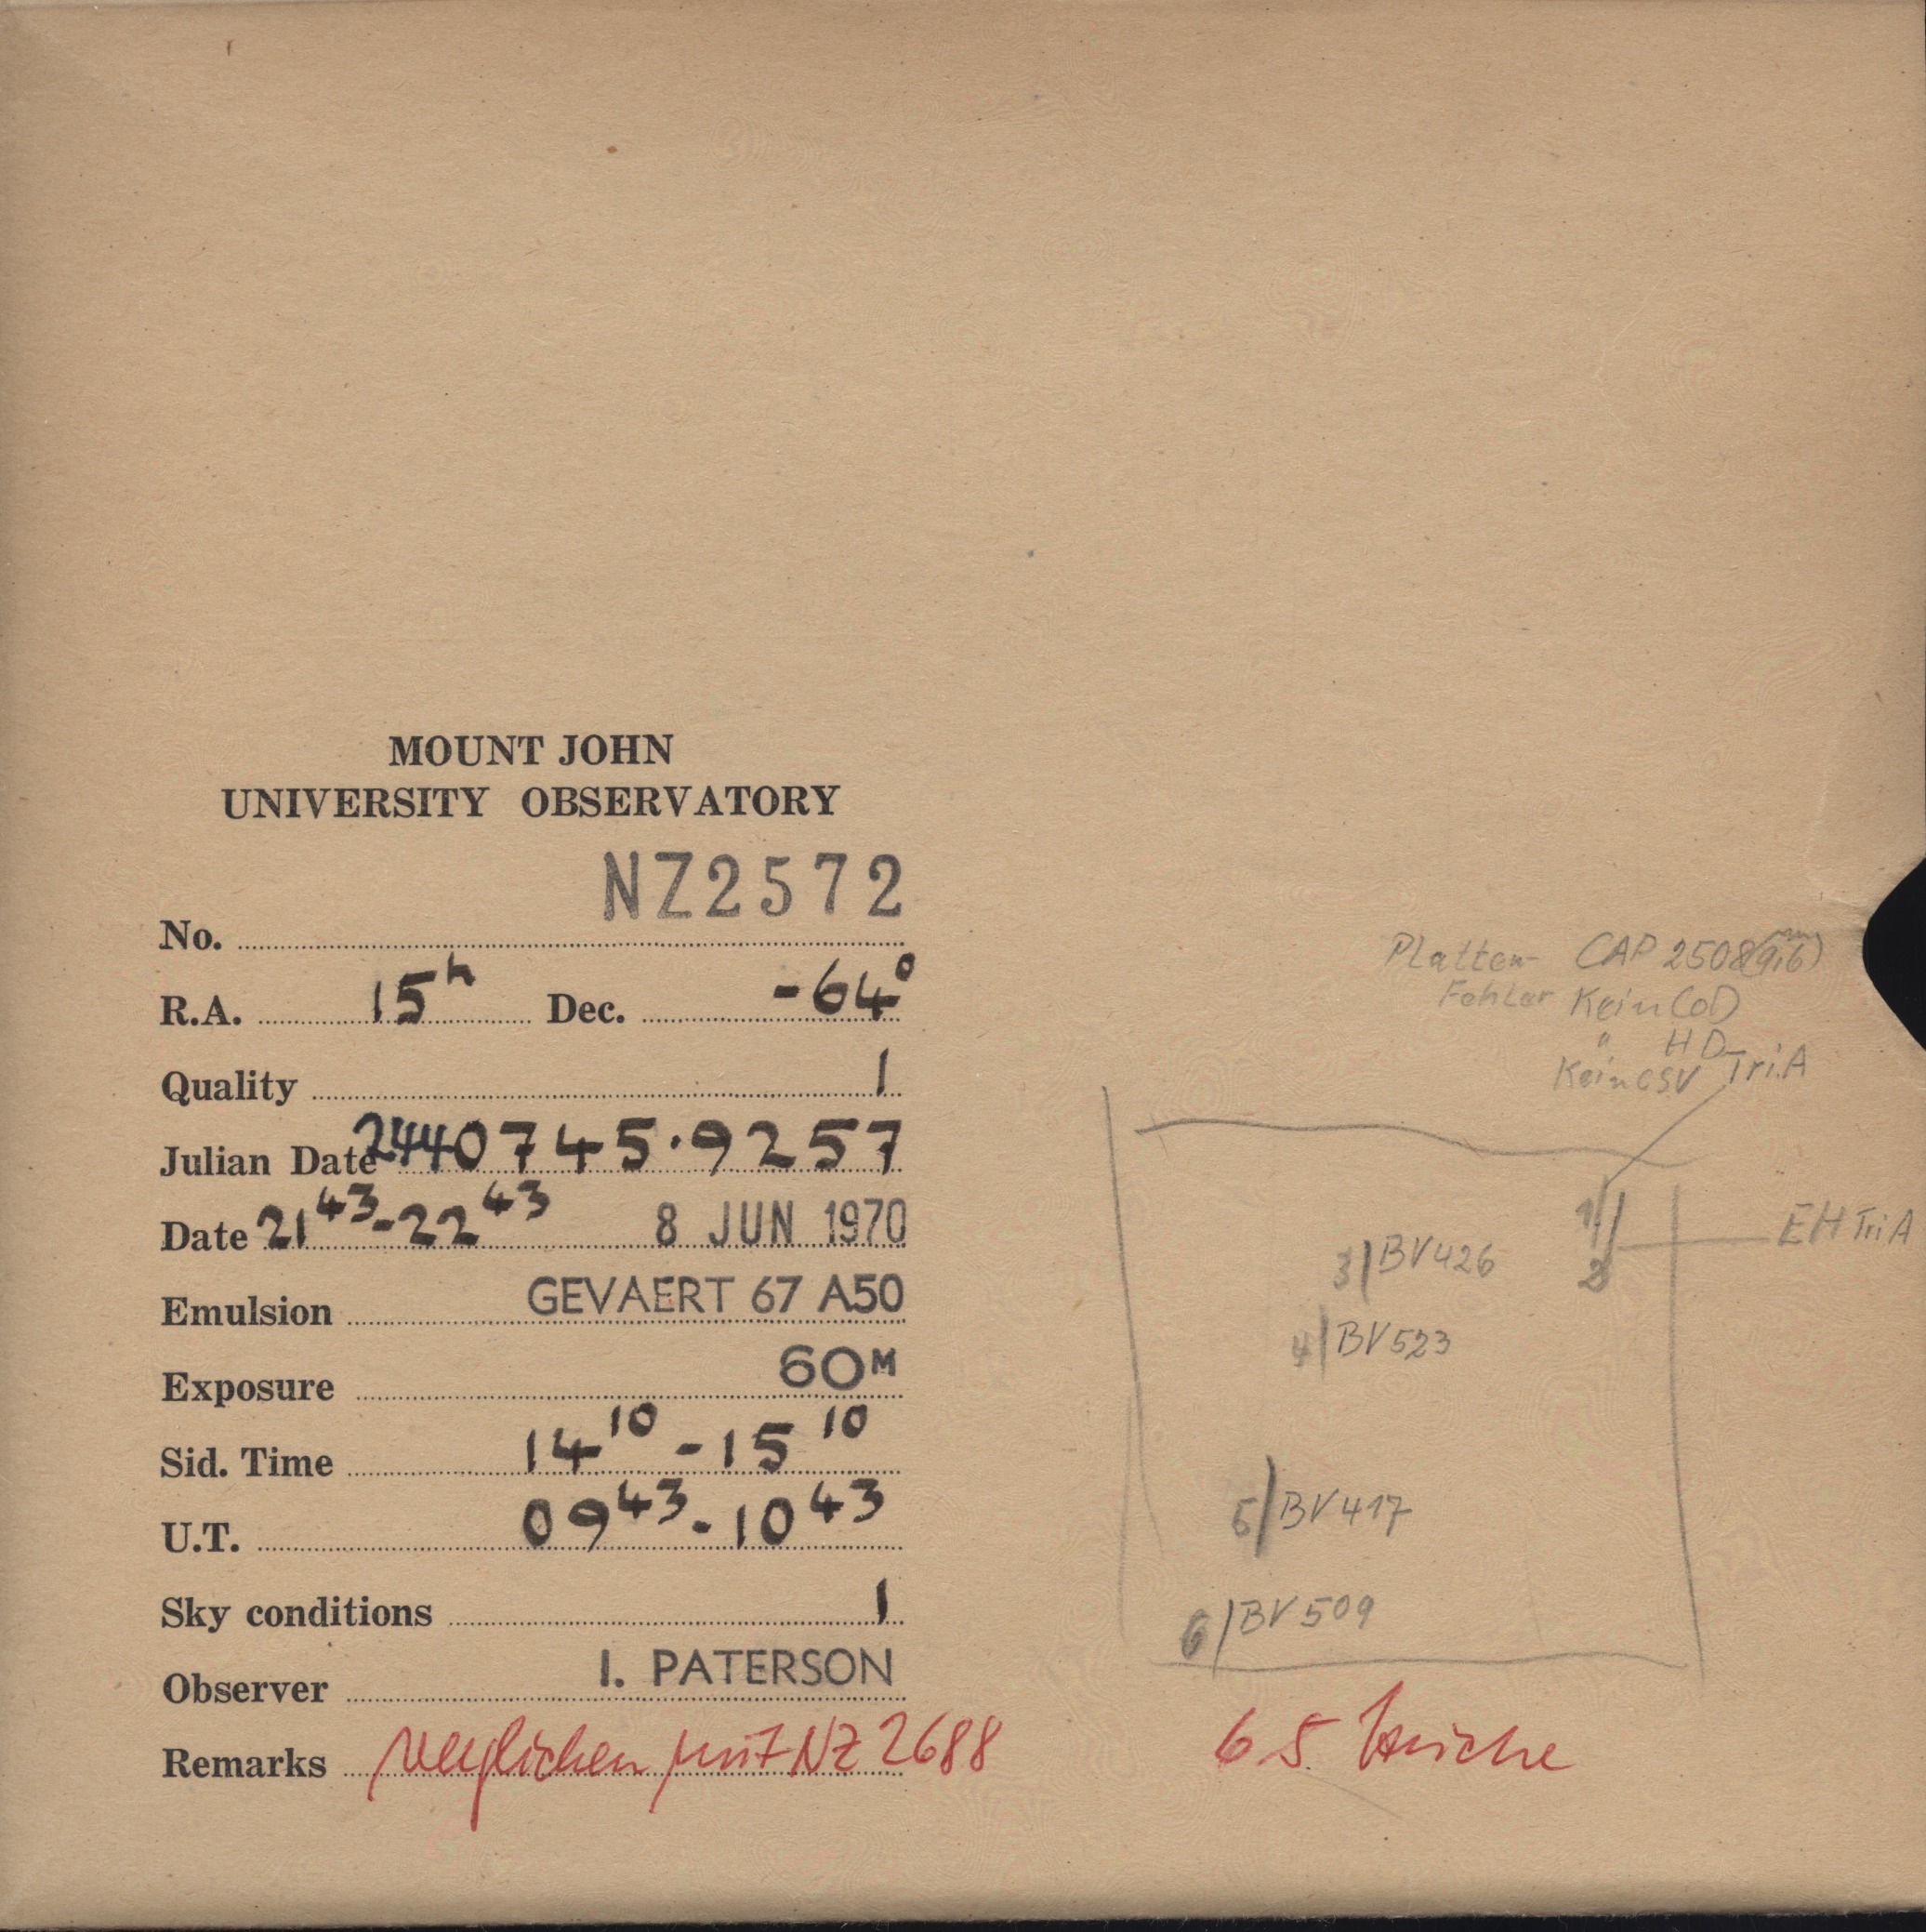 MOUNT JOHN
UNIVERSITY OBSERVATORY
No. NZ2572
R.A. 15h Dec. -64°
Quality 1
Julian Date 2440745.9257
Date 21 43 - 22 43 8 JUN 1970
Emulsion GEVAERT 67 A50
Exposure 60M
Sid. Time 14 10 - 15 10
U.T. 09 43 - 10 43
Sky conditions 1
Observer I. PATERSON
Remarks verglichen mit NZ 2688
Platten- CAP 2508 (9,6)
Fehler Kein CoD
" HD
Kein CSV Tri.A
1
EH Tri A
2
3 BV 426
4 BV 523
5 BV 417
6 BV 509
6 S. Striche